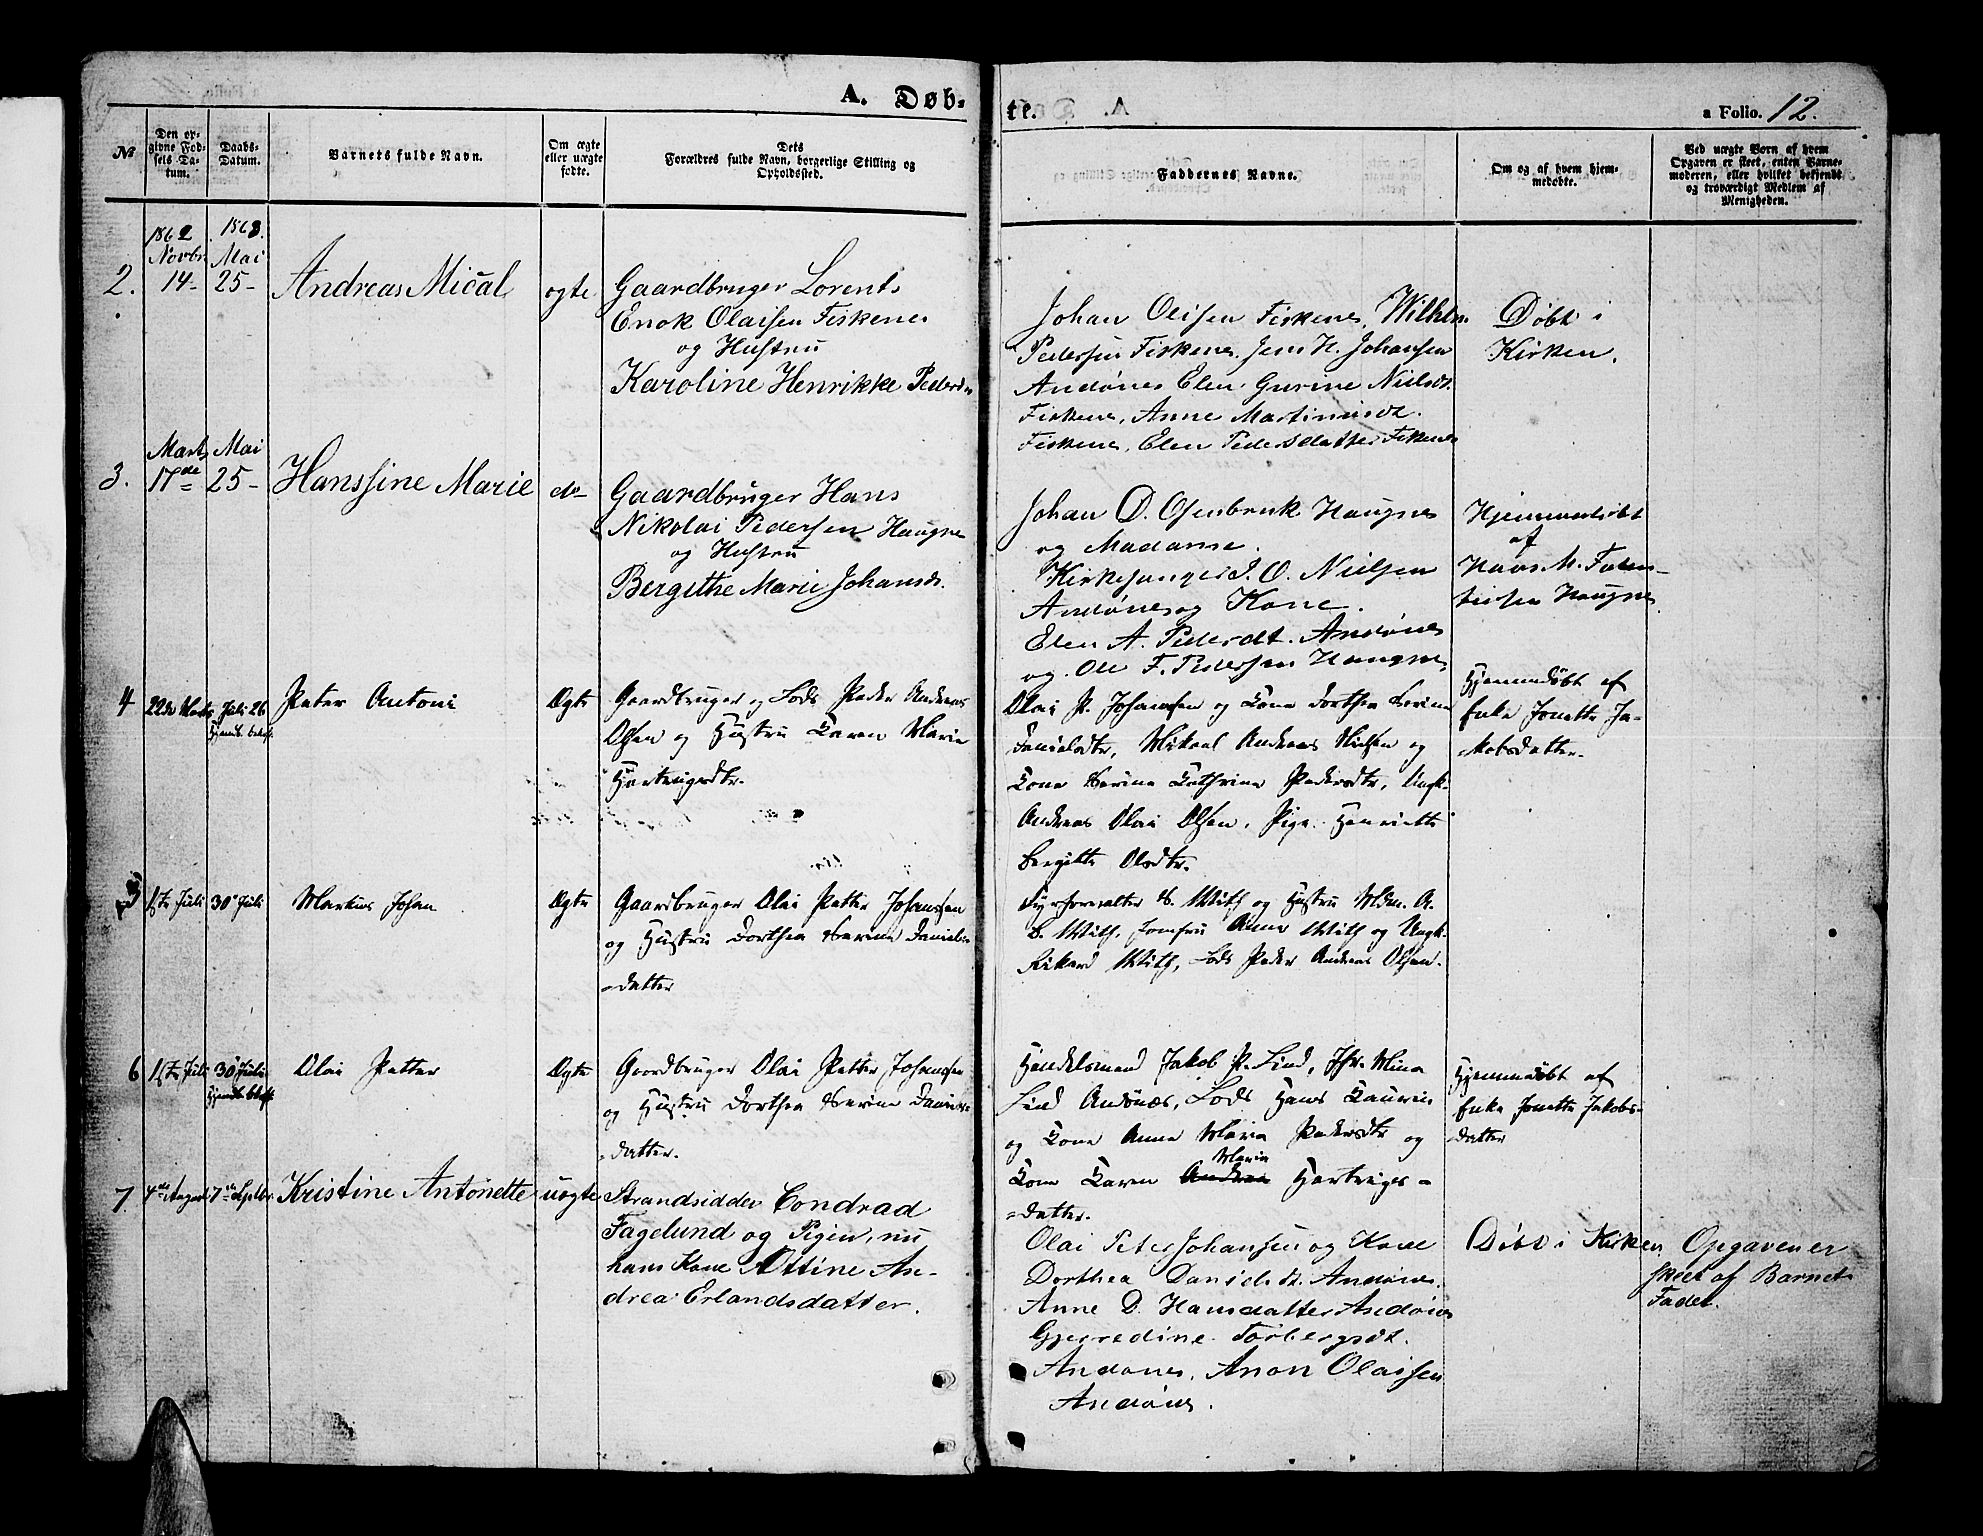 A. Døb-
te.
a Folio. 12.
№
Den op-
givne Fød-
sels Da-
tum.
Daabs-
Datum.
Barnets fulde Navn.
Om ægte
eller uægte
fødte.
Dets
Forældres fulde Navn, borgerlige Stilling og
Opholdssted.
Faddernes Navne.
Om og af hvem hjem-
medøbte.
Ved uægte Børn af hvem
Opgaven er skeet, enten Barne-
moderen, eller hvilket bekjendt
og troværdigt Medlem af
Menigheden.
2.
1862
Novbr
14-
1863.
Mai
25-
Andreas Mical
ægte
Gaardbruger Lorents
Enok Olaisen Fiskenes
og Hustru
Karoline Henrikke Peders
Johan Olisen Fiskenes, Wilhlm
Pedersen Fiskenes. Jens H. Johansen
Andønes Elen Gurine Nielsdt.
Fiskenes, Anne Martinusdt.
Fiskenes, Elen Pedersdatter Fiskenes
Døbt i
Kirken.
3.
Marts
17de
Mai
25-
Hanssine Marie
do-
Gaardbruger Hans
Nikolai Pedersen Haugnes
og Hustru
Bergithe Marie Johansdt.
Johan D. Osenbruk Haugnes
og Madamme.
Kirkesanger I. O. Nielsen
Andønes og Kone.
Elen A. Pedersdt. Andønes
og Ole F. Pedersen Haugnes
Hjemmedøbt
af
Hans M. Faden-
Haugnes
4
22de Marts
Juli 26
Hjemd. bekft.
Peter Antoni
Ægte
Gaardbruger og Lods Peder Andreas
Olsen og Hustru Karen Marie
Hartvigsdtr.
Olai P. Johansen og Kone Dorthea Serine
Danielsdtr, Mikael Andreas Nielsen og
Kone Serine Kathrine Pedersdtr, Ungk.
Andreas Olai Olsen, Pige Henriette
Bergitte Olsdtr.
Hjemmedøbt af
Enke Jonette Ja-
kobsdatter.
5
1ste Juli
30te Juli
Markus Johan
Ægte
Gaardbruger Olai Petter Johansen
og Hustru Dorthea Serine Daniels-
-datter
Fyrforvalter B. With og Hustru Mdm. A.
B. With, Jomfru Anna With og Ungk.
Rikard With, Lods Peder Andreas Olsen.
6
1ste Juli
30te Juli
Hjemdb. bekft.
Olai Petter
Ægte
Gaardbruger Olai Petter Johansen
og Hustru Dorthea Serine Daniels-
-datter.
Handelsmand Jakob P. Lind, Jfr. Mina
Lind Andønæs, Lods Hans Laurin
og Kone Anna Maria Pedersdtr og
Kone Karen Andrea Maria Hartvigs-
-datter.
Hjemmedøbt af
Enke Jonette Jakobs-
datter
7
4de August
7de Septbr.
Kristine Antonette
uægte
Strandsidder Condrad
Fagelund og Pigen, nu
hans Kone Ottine An-
drea Erlandsdatter.
Olai Peter Johansen og Kone
Dorthea Danielsdt. Andønes.
Anne D. Hansdatter Andønes
Gjeredine Torbergsdt.
Andønes, Anon Olaisen
Andønes.
Døbt i Kirken
Opgaven er
skeet af Barnets
Fader.